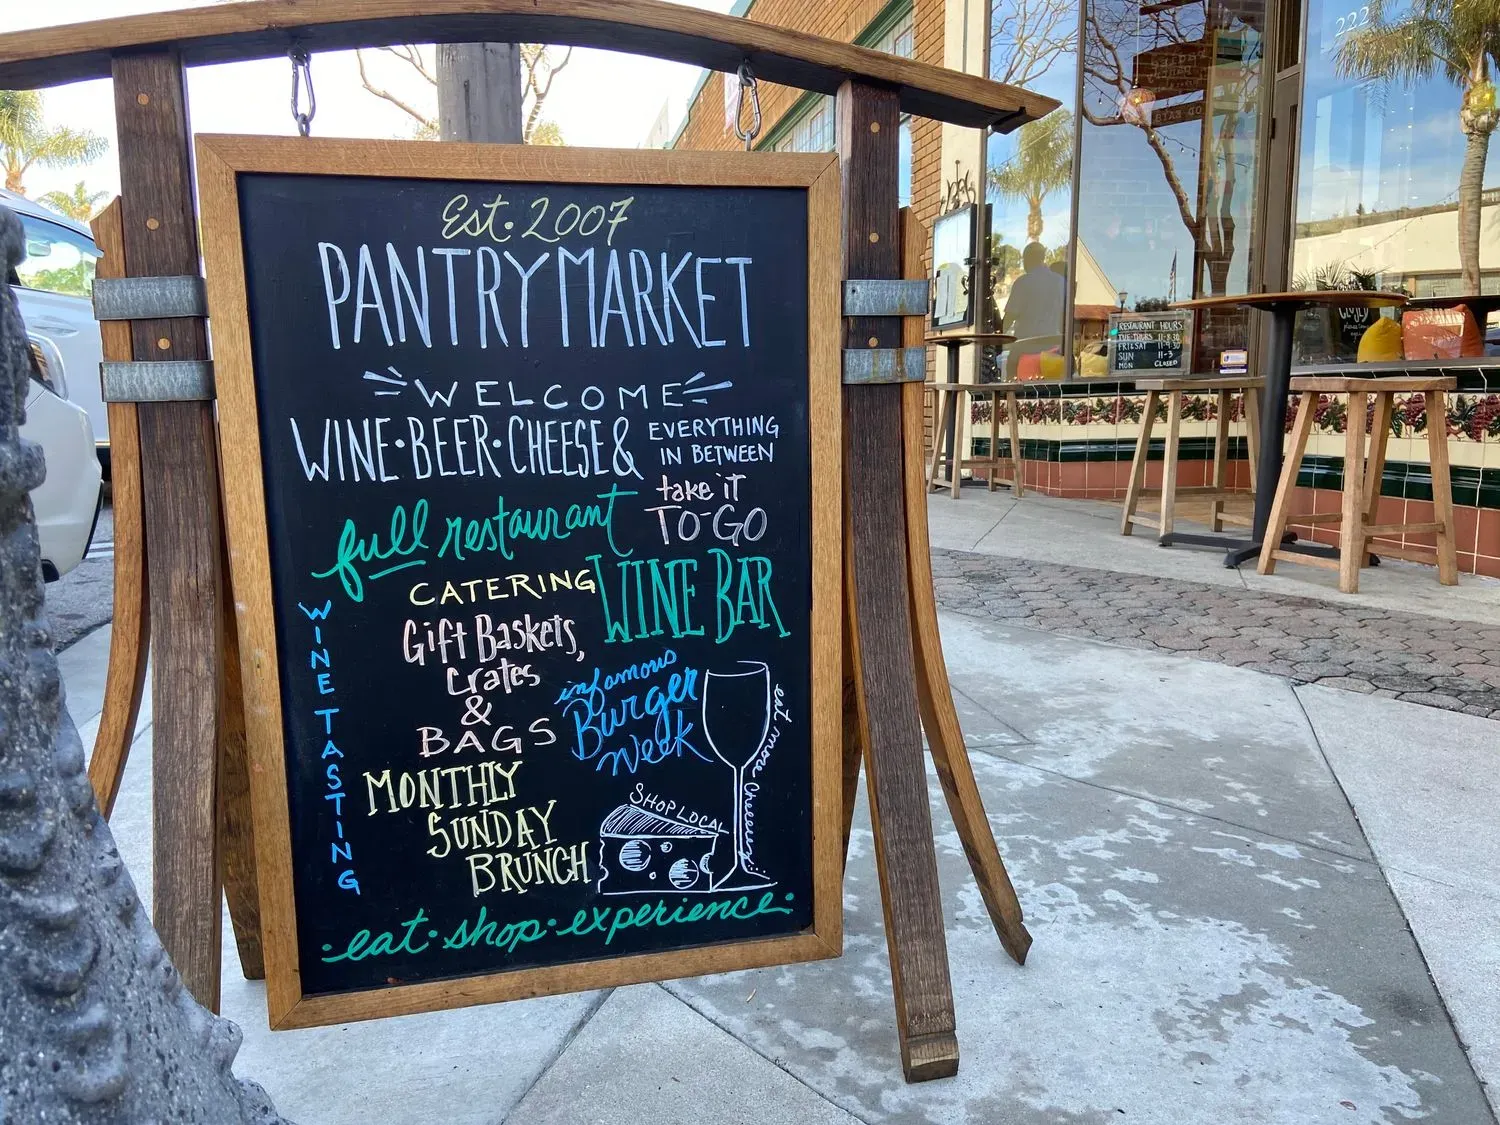 Est. 2007
PANTRY MARKET
WELCOME
WINE • BEER • CHEESE &
EVERYTHING
IN BETWEEN
full restaurant
take it
TO-GO
CATERING
WINE BAR
Gift Baskets,
Crates
&
BAGS
infamous
Burger
Week
WINE TASTING
MONTHLY
SUNDAY
BRUNCH
SHOP LOCAL
eat more
• eat • shop • experience •
RESTAURANT HOURS
SUN 11-3
MON CLOSED
222